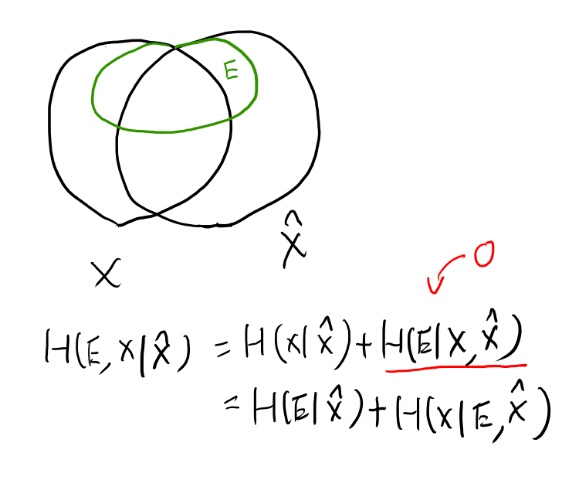 E
X
X̂
0
H(E,X|X̂) = H(X|X̂)+H(E|X,X̂)
= H(E|X̂)+H(X|E,X̂)